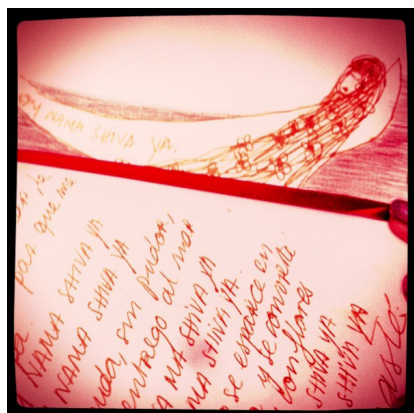 OM NAMA SHIVA YA.
paz que me
NAMA SHIVA YA
NAMA SHIVA YA
sin pudor,
entrego al mar
NA MA SHIVA YA
MA SHIVA YA.
se esparce en
y se convierte
con flores
SHIVA YA
SHIVA YA